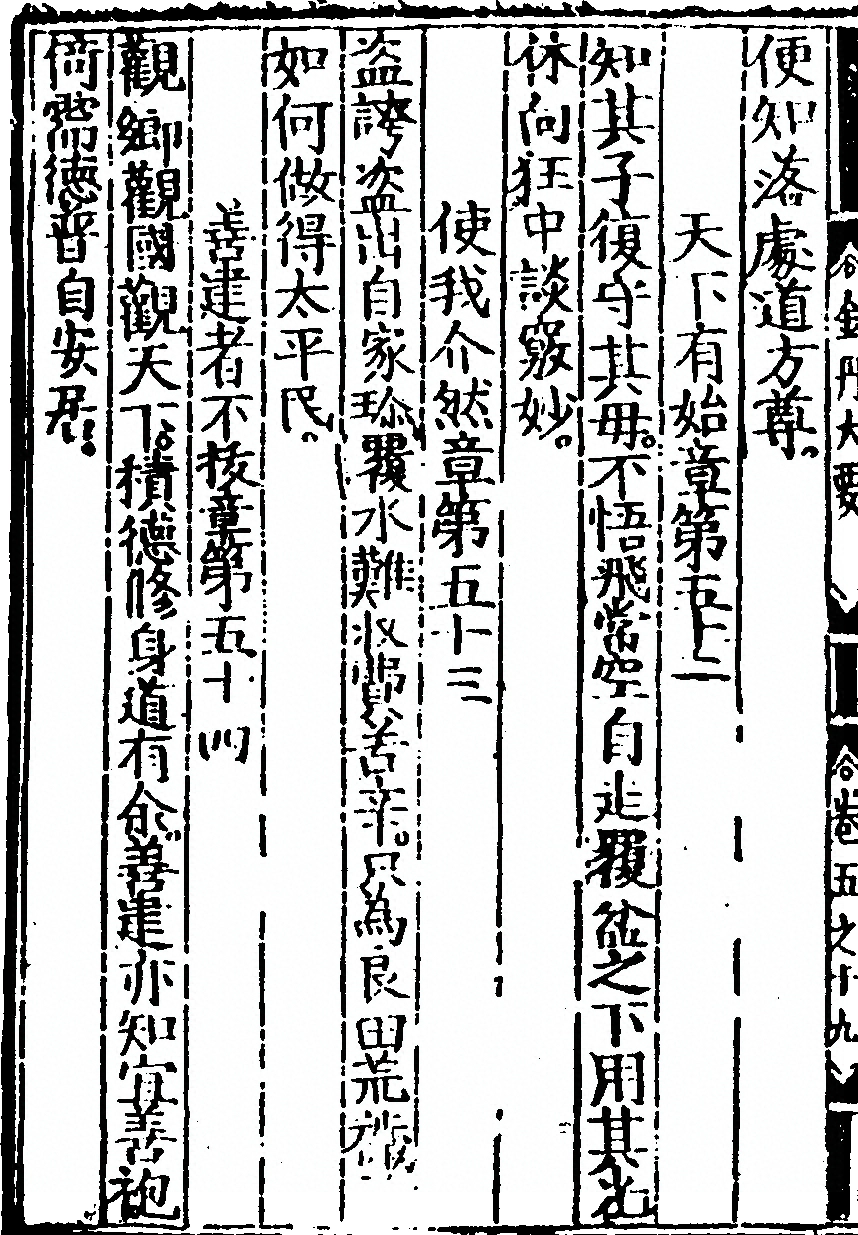 金丹大要
卷五之十九
便知落處道方尊。
天下有始章第五十二
知其子復守其母。不悟飛常空自走覆盆之下用其光
休向狂中談竅妙。
使我介然章第五十三
盗誇盗出自家珎覆水難收費苦辛。只為良田荒
如何做得太平民。
善建者不拔章第五十四
觀鄉觀國觀天下。積德修身道有余。善建亦知宜善抱
倚需德普自安居。